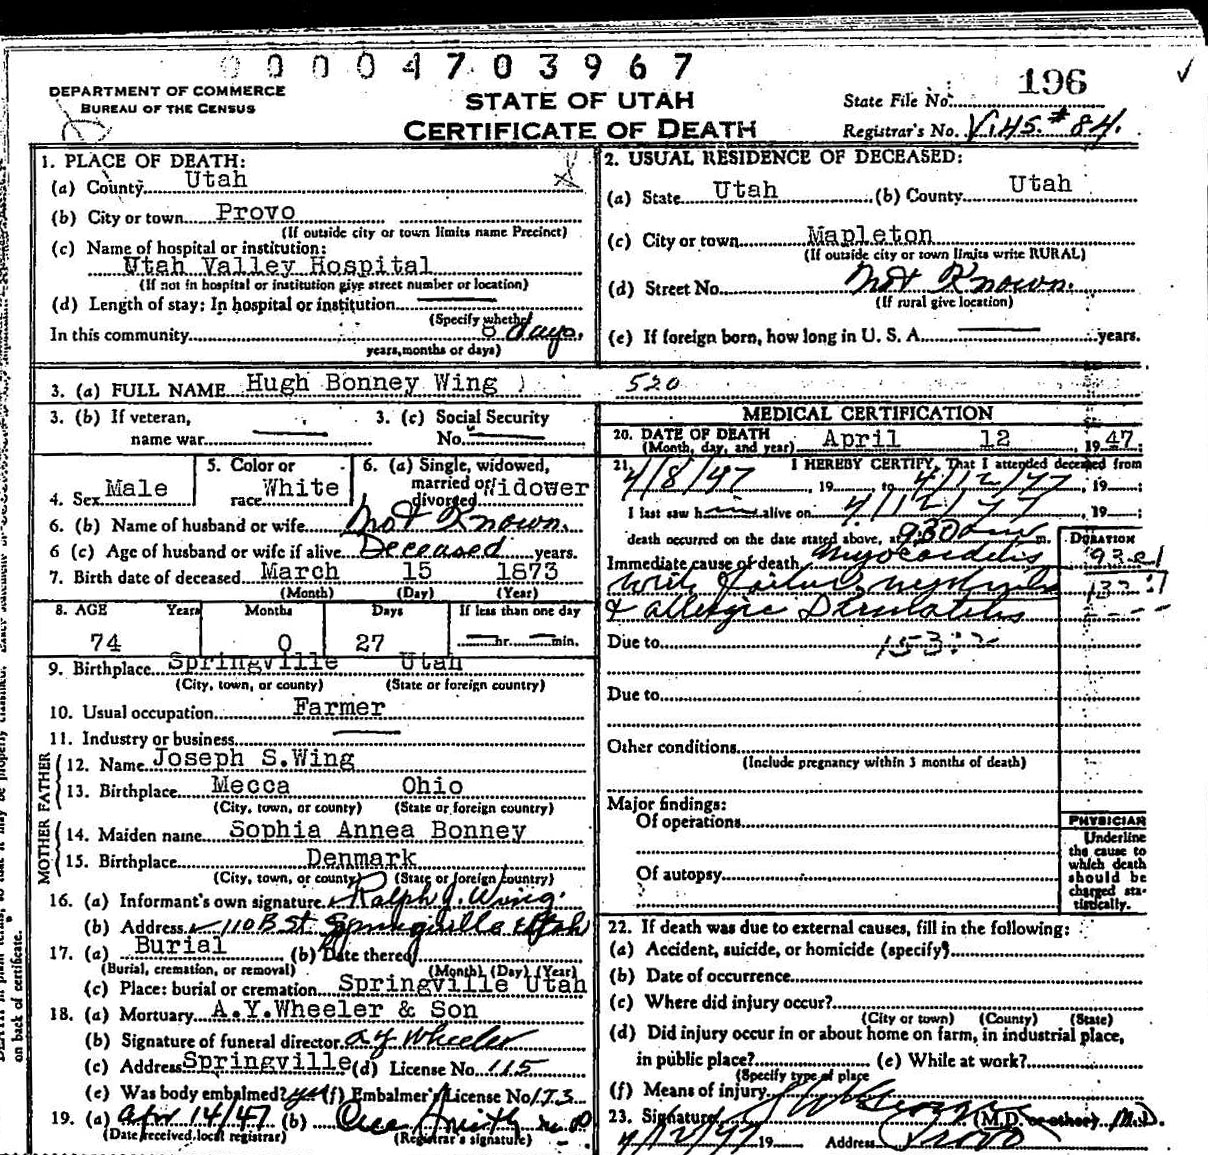 00004703967
DEPARTMENT OF COMMERCE
BUREAU OF THE CENSUS
STATE OF UTAH
CERTIFICATE OF DEATH
State File No. 196
Registrar's No. V.H.S. #84.
1. PLACE OF DEATH:
(a) County Utah
(b) City or town Provo
(If outside city or town limits name Precinct)
(c) Name of hospital or institution:
Utah Valley Hospital
(If not in hospital or institution give street number or location)
(d) Length of stay: In hospital or institution
(Specify whether
In this community 8 days.
years, months or days)
2. USUAL RESIDENCE OF DECEASED:
(a) State Utah (b) County Utah
(c) City or town Mapleton
(If outside city or town limits write RURAL)
(d) Street No. Not Known.
(If rural give location)
(e) If foreign born, how long in U. S. A. years.
3. (a) FULL NAME Hugh Bonney Wing 520
3. (b) If veteran,
name war
3. (c) Social Security
No.
4. Sex Male
5. Color or
race White
6. (a) Single, widowed,
married or
divorced Widower
6. (b) Name of husband or wife Not Known.
6 (c) Age of husband or wife if alive Deceased years.
7. Birth date of deceased March 15 1873
(Month) (Day) (Year)
8. AGE Years Months Days If less than one day
74 0 27 hr. min.
9. Birthplace Springville Utah
(City, town, or county) (State or foreign country)
10. Usual occupation Farmer
11. Industry or business
FATHER
12. Name Joseph S.Wing
13. Birthplace Mecca Ohio
(City, town, or county) (State or foreign country)
MOTHER
14. Maiden name Sophia Annea Bonney
15. Birthplace Denmark
(City, town, or county) (State or foreign country)
16. (a) Informant's own signature Ralph J. Wing.
(b) Address 110 B St. Springville Utah
17. (a) Burial (b) Date thereof
(Burial, cremation, or removal) (Month) (Day) (Year)
(c) Place: burial or cremation Springville Utah
18. (a) Mortuary A.Y.Wheeler & Son
(b) Signature of funeral director A Y Wheeler
(c) Address Springville (d) License No. 115
(e) Was body embalmed? yes (f) Embalmer's License No. 173
19. (a) Apr 14/47 (b) Smith M D
(Date received local registrar) (Registrar's signature)
MEDICAL CERTIFICATION
20. DATE OF DEATH April 12 1947;
(Month, day, and year)
21. I HEREBY CERTIFY, That I attended deceased from
4/8/47, 19 to 4/12/47, 19 ;
I last saw him alive on 4/12/47, 19 ;
death occurred on the date stated above, at 9:30 am m.
DURATION
Immediate cause of death Myocarditis 93c1
with failure, nephritis
& allergic Dermatitis
Due to 153:2
Due to
Other conditions
(Include pregnancy within 3 months of death)
Major findings:
Of operations
Of autopsy
PHYSICIAN
Underline
the cause to
which death
should be
charged sta-
tistically.
22. If death was due to external causes, fill in the following:
(a) Accident, suicide, or homicide (specify)
(b) Date of occurrence
(c) Where did injury occur?
(City or town) (County) (State)
(d) Did injury occur in or about home on farm, in industrial place,
in public place? (e) While at work?
(Specify type of place
(f) Means of injury
23. Signature (M.D. or other) M.D.
4/12/47 19 Address Provo
on back of certificate.